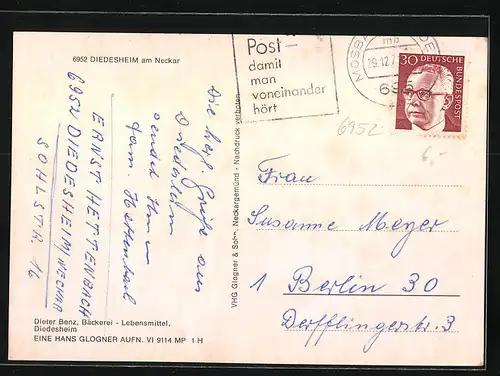 6952 DIEDESHEIM am Neckar
Die herzl. Grüße aus
Diedesheim
sendet Ihnen
Fam. Hettenbach
ERNST HETTENBACH
6952 DIEDESHEIM/NECKAR
SOHLSTR. 16
Dieter Benz, Bäckerei - Lebensmittel,
Diedesheim
EINE HANS GLOGNER AUFN. VI 9114 MP 1 H
VHG Glogner & Sohn, Neckargemünd - Nachdruck verboten
Post –
damit
man
voneinander
hört
MOSBA
mb
29.12.7
695
30 DEUTSCHE
BUNDESPOST
6952
6,-
Frau
Susanne Meyer
1 Berlin 30
Derfflingerstr. 3